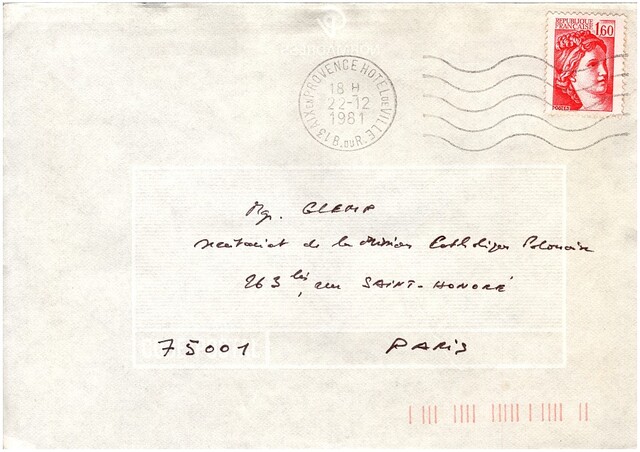 REPUBLIQUE
FRANÇAISE
1,60
AIX EN PROVENCE HOTEL DE VILLE
18 H
22-12
1981
13 B. DU R.
Mgr. GLEMP
secrétariat de la Mission Catholique Polonaise
263 bis, rue SAINT-HONORÉ
75001 PARIS